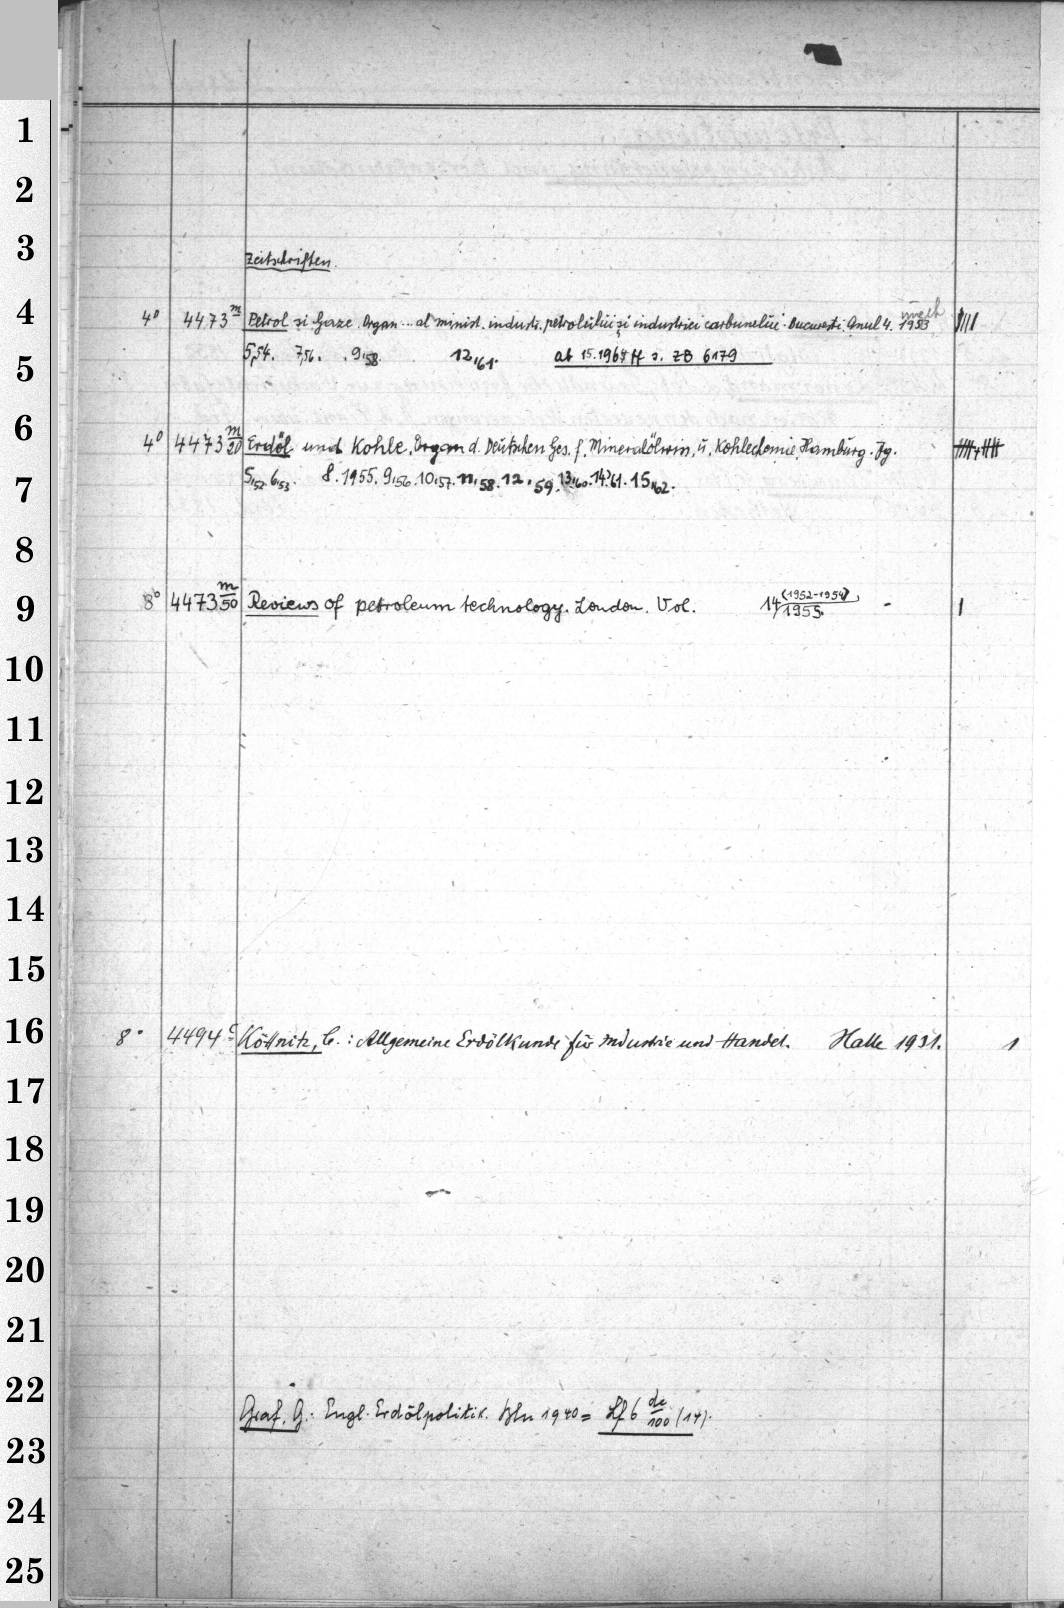 1
2
3
Zeitschriften.
4
4° 4473 m Petrol și Gaze. Organ... al minist. industr. petrolului și industriei carbunelui. București. Anul 4. 1953
5
5,54. 7,56. 9,58. 12,61. ab 15.1964 ff s. ZB 6179
6
4° 4473 m/20 Erdöl und Kohle. Organ d. Deutschen Ges. f. Mineralölwiss. u. Kohlechemie. Hamburg. Jg.
7
5,52. 6,53. 8.1955. 9,56. 10,57. 11,58. 12,59. 13,60. 14,61. 15,62.
8
9
8° 4473 m/50 Reviews of petroleum technology. London. Vol. 14 (1952-1954)/1955. -
10
11
12
13
14
15
16
8° 4494 c Köttnitz, C.: Allgemeine Erdölkunde für Industrie und Handel. Halle 1931. 1
17
18
19
20
21
22
Graf, G.: Engl. Erdölpolitik. Bln 1940 = Lf 6 de/100 (14).
23
24
25